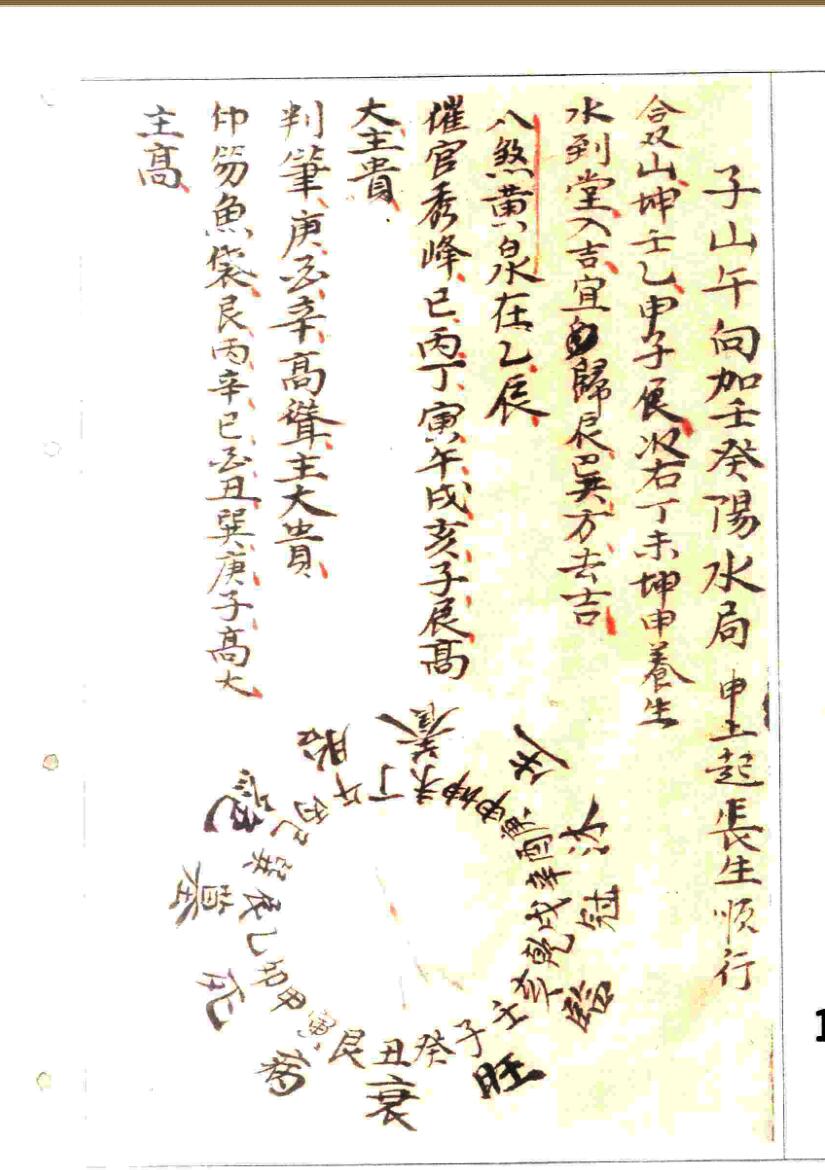 子山午向加壬癸陽水局 申上起長生順行
合双山坤壬乙申子辰收右丁未坤申養生
水到堂入吉宜歸辰巽方去吉
八煞黄泉在乙辰
催官秀峰巳丙丁寅午戌亥子辰高
大主貴
判筆庚酉辛高聳主大貴
印笏魚袋艮丙辛巳酉丑巽庚子高大
主高
養 生 沐 冠 臨 旺 衰 病 死 墓 絕 胎
丁未坤申庚酉辛戌乾亥壬子癸丑艮寅甲卯乙辰巽巳丙午